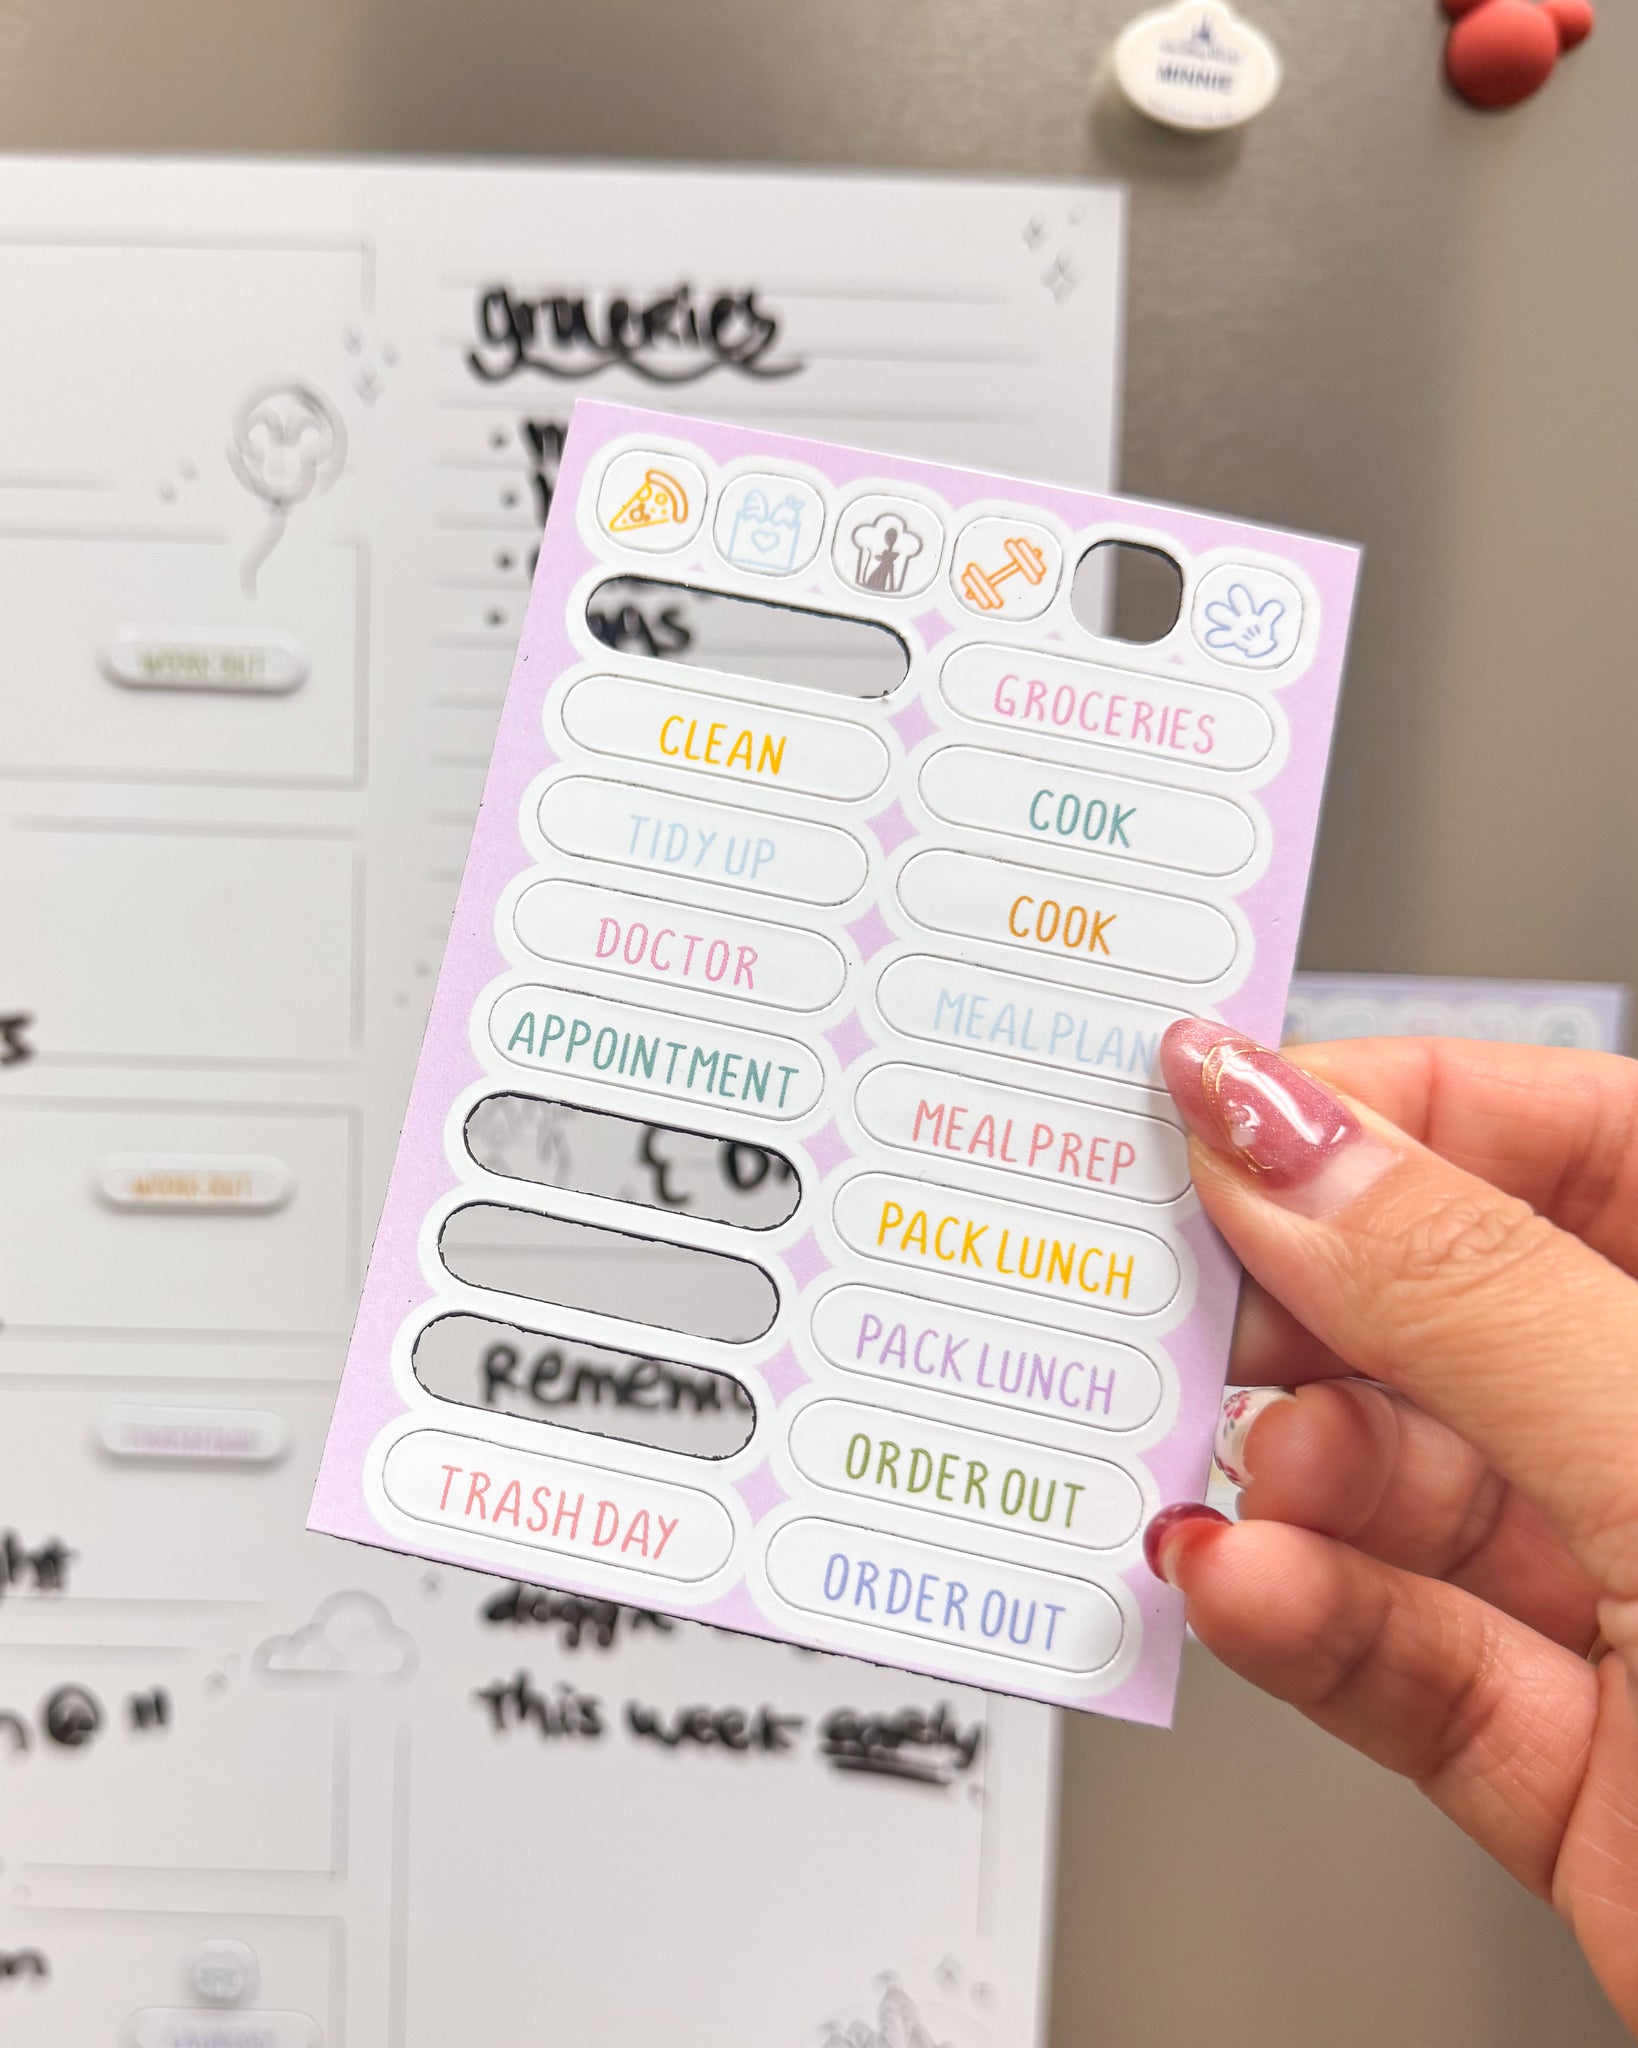 MINNIE
groceries
GROCERIES
CLEAN
COOK
TIDY UP
COOK
DOCTOR
MEAL PLAN
APPOINTMENT
MEAL PREP
PACK LUNCH
PACK LUNCH
ORDER OUT
TRASH DAY
ORDER OUT
WORK OUT
WORK OUT
TRASH DAY
this week early